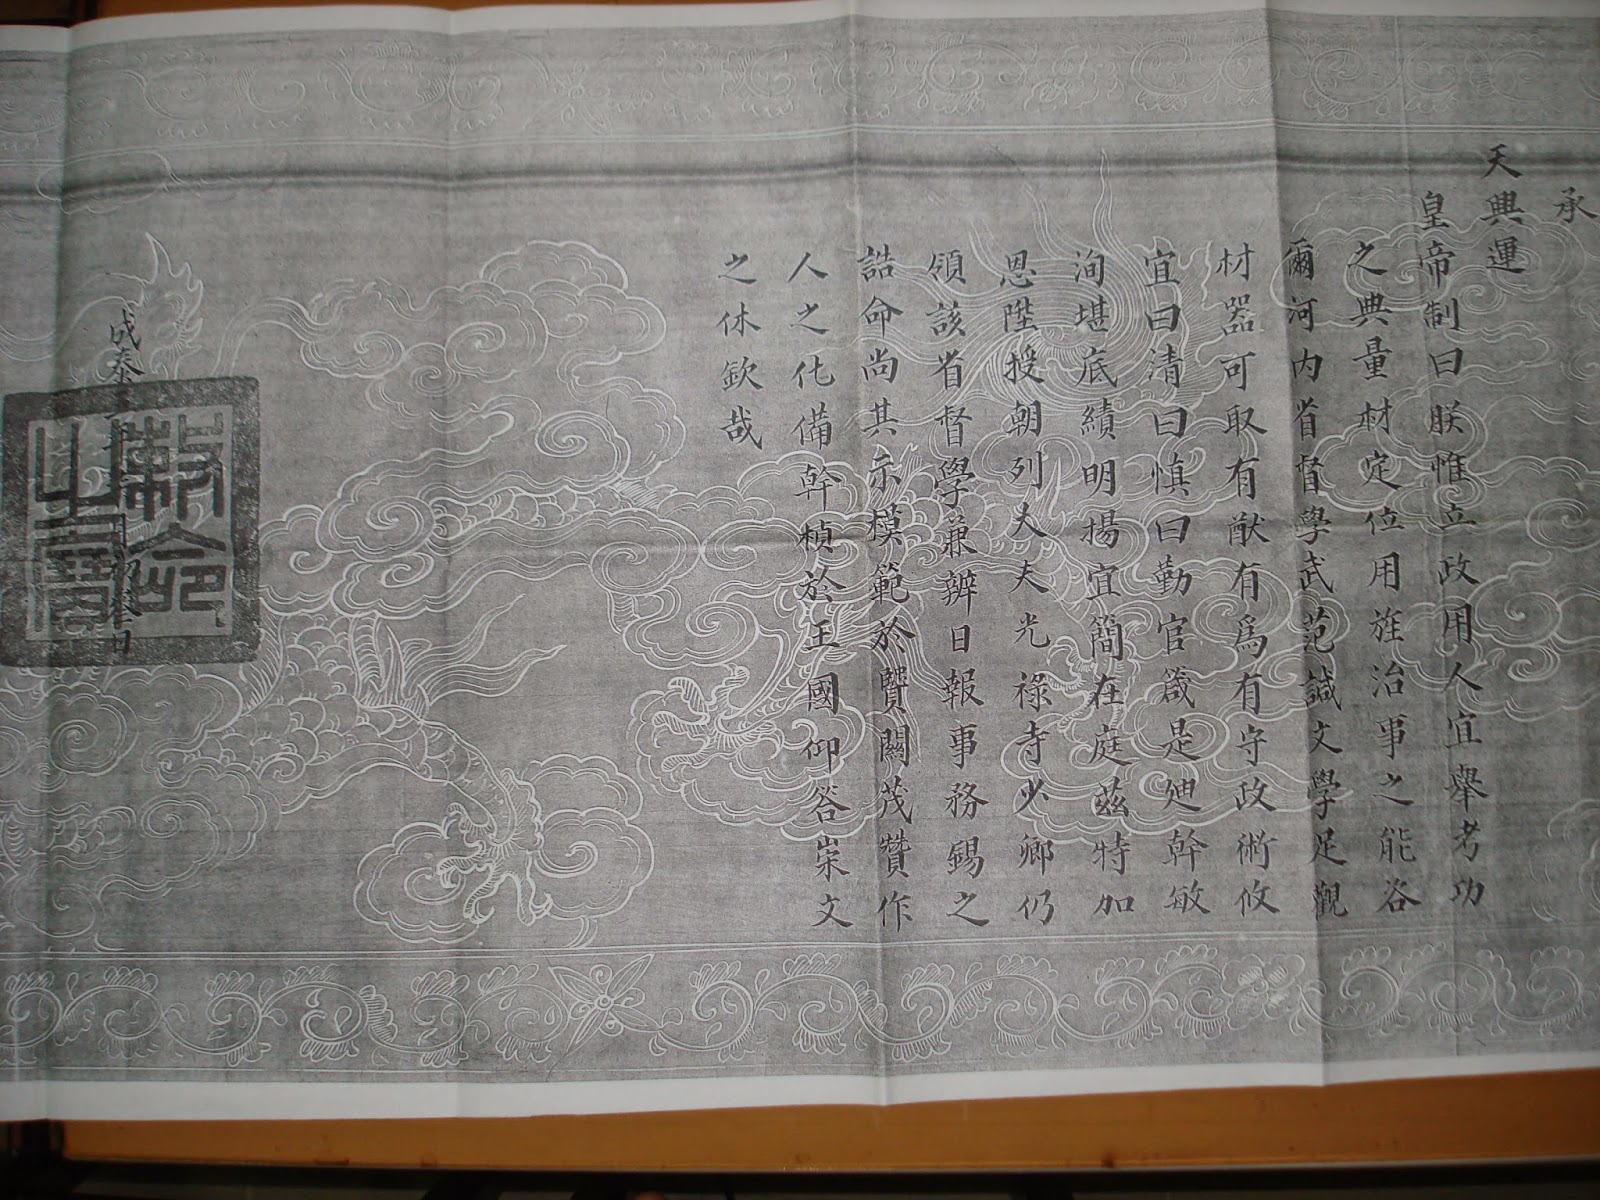 承
天興運
皇帝制曰朕惟立政用人宜舉考功
之典量材定位用旌治事之能咨
爾河内省督學武范諴文學足觀
材器可取有猷有爲有守政術攸
宜曰清曰慎曰勤官箴是廸幹敏
洵堪底績明揚宜簡在庭茲特加
恩陞授朝列大夫光祿寺少卿仍
領該省督學兼辦日報事務錫之
誥命尚其示模範於賢關茂贊作
人之化備幹楨於王國仰答崇文
之休欽哉
成泰
日
敕命之寶